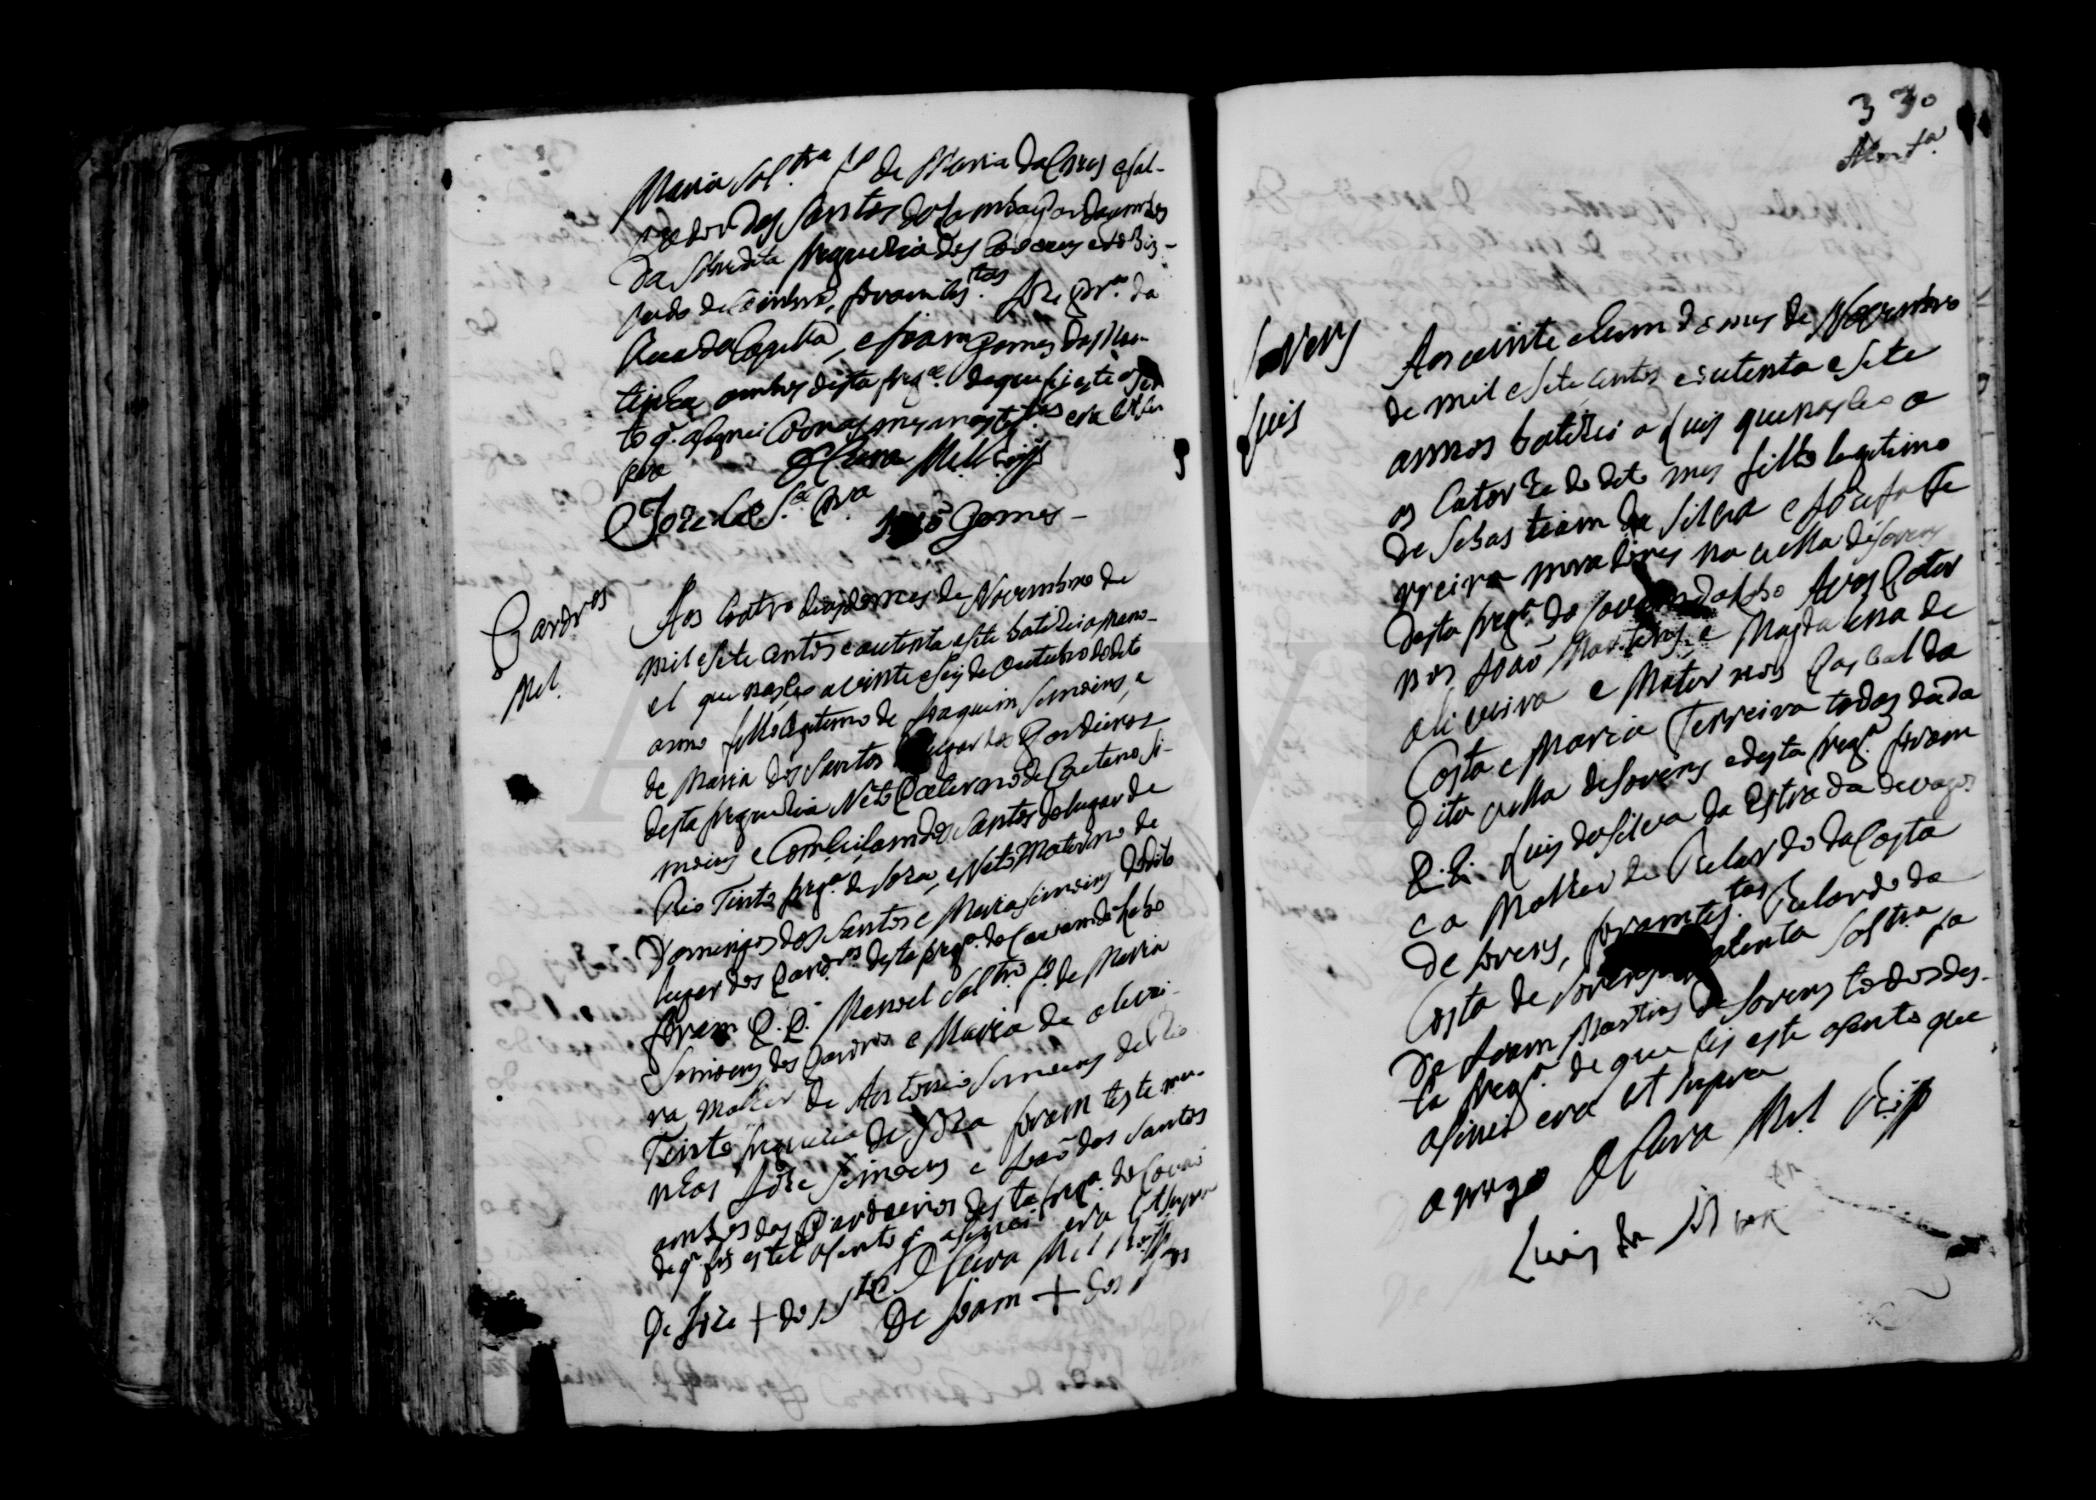 Maria Solt.ra f.a de Maria da Cruz e Sal-
vador dos Santos
da sobredita freguezia dos Covoens e do Bis-
pado de Coimbra, foram tes.tas Joze
Rua da Capella, e Joam Gomes
ambos desta freg.a de que fis este asen-
to q. asignei Com as mesmas tes.tas era ut su
pra O Cura M.el
Joze João Gomes
Gardr.os
M.el
Aos coatro dias do mes de Novembro de
mil e sete centos e outenta e sete batizei a Mano-
el que nasceo a vinte e seis de outubro do dito
anno filho legitimo de Joaquim Simoins, e
de Maria dos Santos lugar dos Gardieiros
desta freguezia Neto Paterno de Caetano Si-
moins e dos Santos do lugar de
Rio Tinto freg.a de Soza, e Neto Materno de
Domingos dos Santos e Maria Simoins do dito
lugar dos Gardr.os desta freg.a de Covam do Lobo
foram P.P. Manoel Solt.ro f.o de Maria
Simoins dos Gardros e Maria de olivei-
ra, molher de Antonio Simoins de Rio
Tinto freguezia de Soza foram teste mu-
nhas Joze Simoins e João dos Santos
ambos dos Gardieiros desta freg.a do Covão
de q. fis este asento q. asignei era ut supra
O Cura M.el
De Joze + dos S.tos De Joam + dos
330
Soveris
Luis
Aos vinte e hum do mes de Novembro
de mil e sete centos e outenta e sete
annos batizei a Luis que nasceo a
os Catorze do dito mes filho legitimo
de Sebastiam da Silva e Josefa Fe
rreira moradores na quella de Soveris
desta freg.a do Covam do Lobo Avos Pater
nos João Martins e Magdalena de
oliveira e Maternos Pascoal da
Costa e Maria Ferreira todos da da
dita de Soveris e desta freg.a foram
P.P. Luis da Silva da Estrada de vagos
e a Molher de Belardo da Costa
de Soveris, foram tes.tas Belardo da
Costa de Soveris Solt.ra f.a
De Joam Martins de Soveris todos des-
ta freg.a de que fis este asento que
asinei era ut supra
a rogo O Cura M.el
Luis da Silva